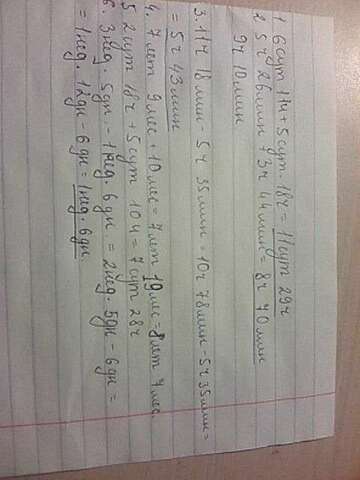 1 6 сут 11ч + 5 сут. 18ч = 11 сут 29ч
2 5ч 26 мин + 3ч 44 мин = 8ч 70 мин
9ч 10 мин
3. 11ч 18 мин - 5ч 35 мин = 10ч 78 мин - 5ч 35 мин =
= 5ч 43 мин
4. 7 лет 9 мес + 10 мес = 7 лет 19 мес = 8 лет 7 мес.
5 2 сут 18ч + 5 сут 10ч = 7 сут 28ч
6. 3 нед. 5 дн. - 1 нед. 6 дн. = 2 нед. 5 дн - 6 дн =
= 1 нед. 12 дн - 6 дн = 1 нед. 6 дн.